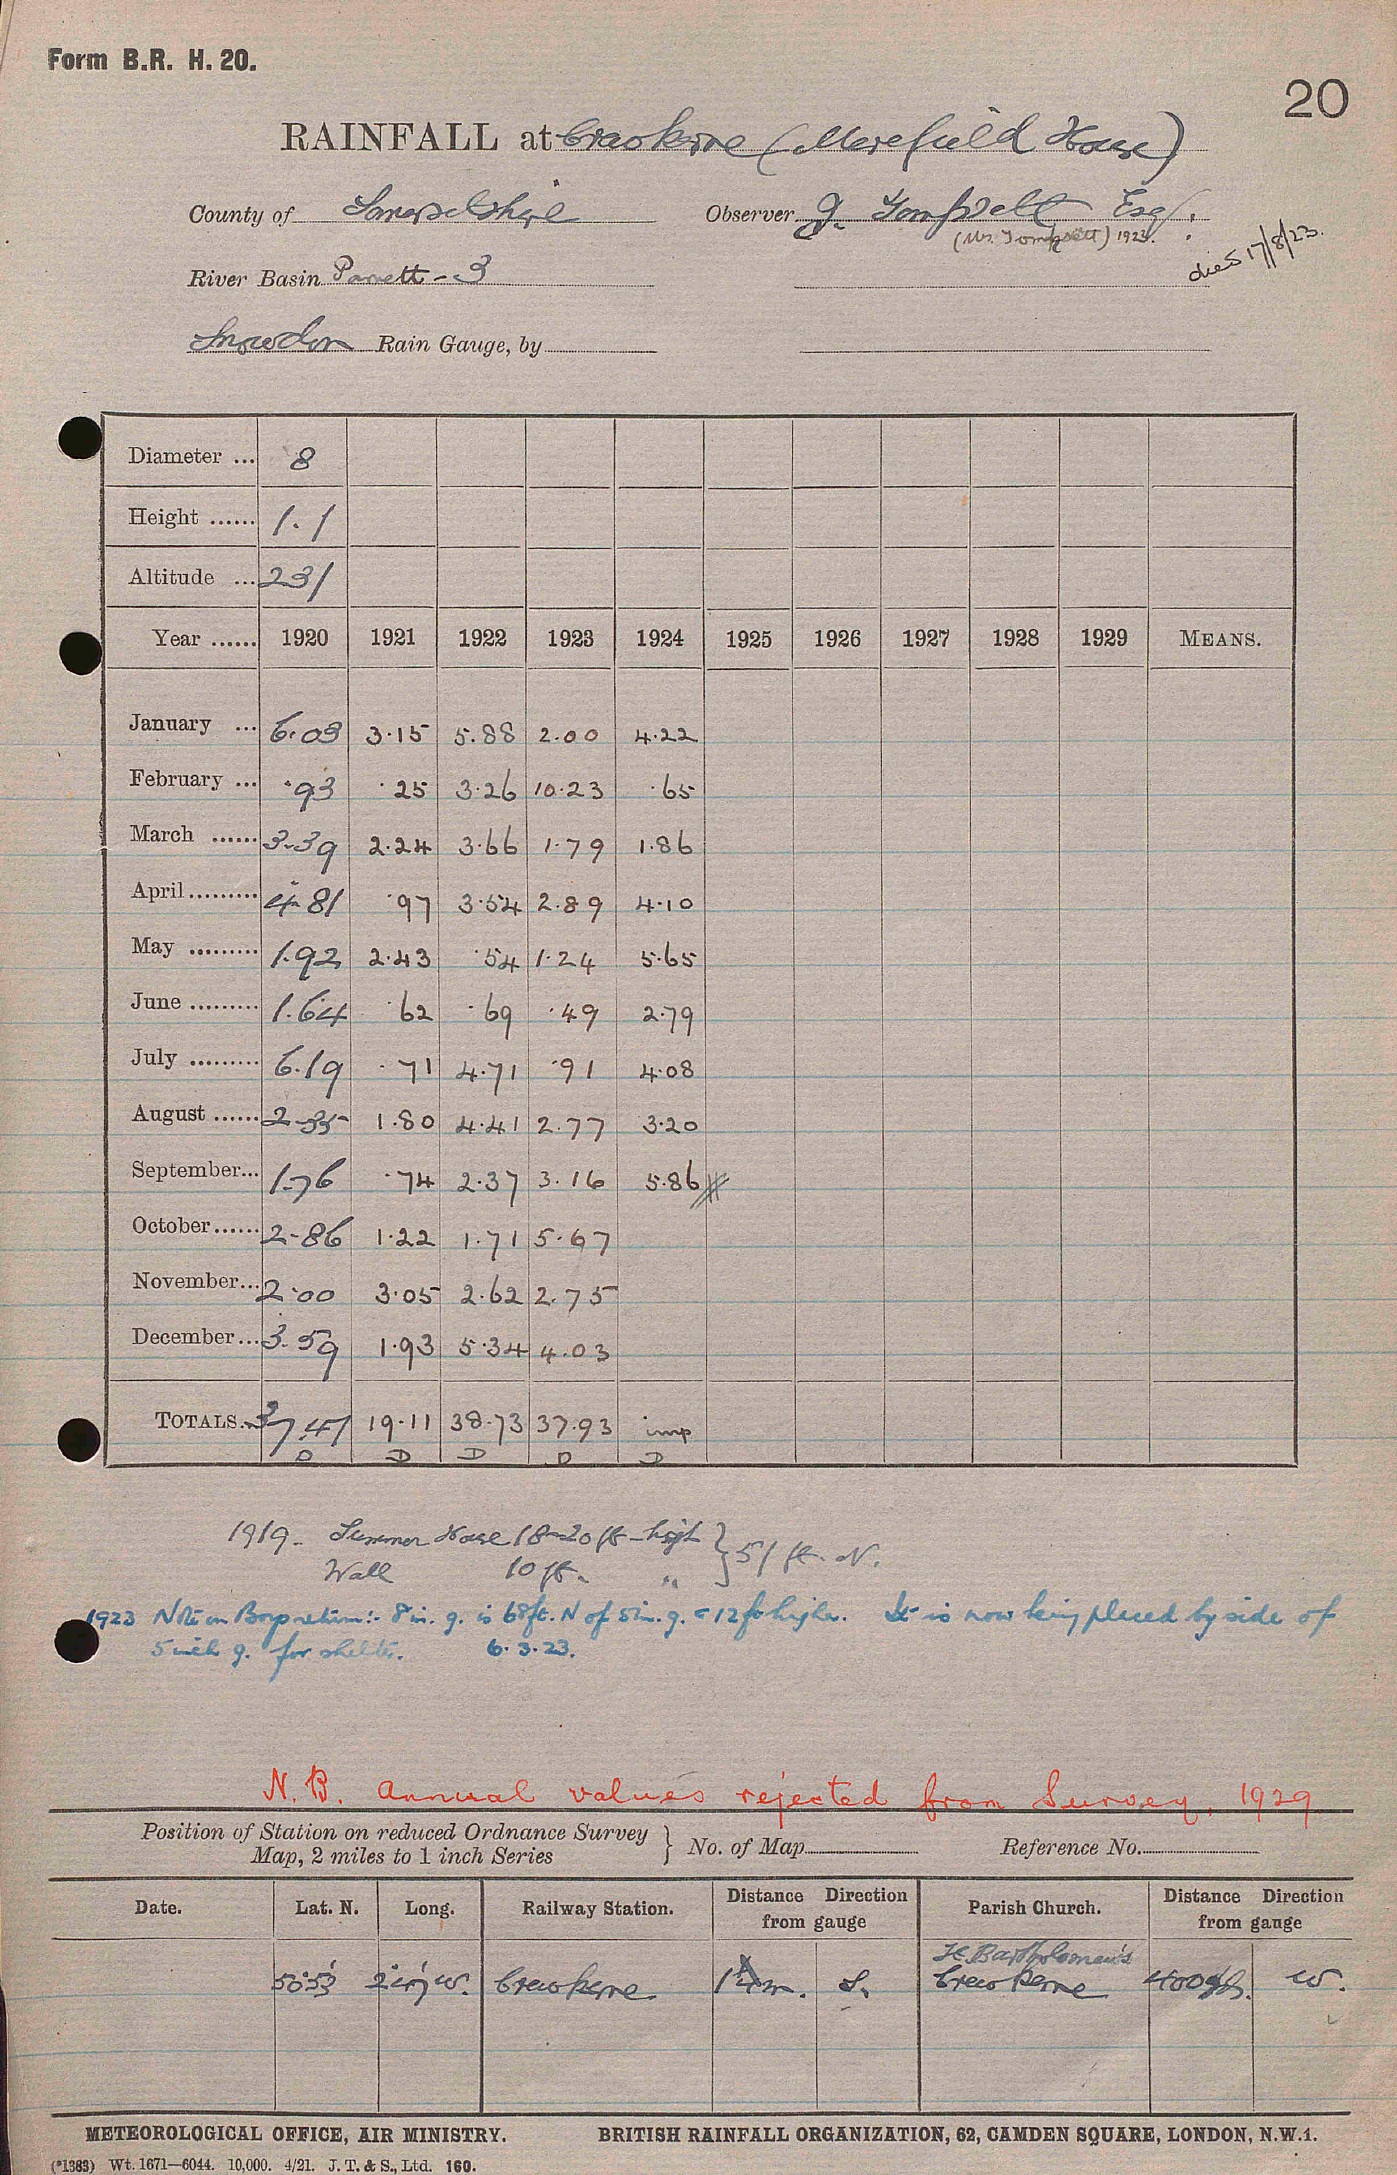 Form B.R. H. 20.
20
RAINFALL at Crewkerne (Merefield House)
County of Somersetshire Observer Esq.
(Mr. Tompsett) 1923.
died 17/8/23.
River Basin Parrett - 3
Snowdon Rain Gauge, by
Diameter ... 8
Height ...... 1.1
Altitude ... 231
Year ...... 1920 1921 1922 1923 1924 1925 1926 1927 1928 1929 MEANS.
January ... 6.03 3.15 5.88 2.00 4.22
February ... .93 .25 3.26 10.23 .65
March ...... 3.39 2.24 3.66 1.79 1.86
April ......... 4.81 .97 3.54 2.89 4.10
May ......... 1.92 2.43 .54 1.24 5.65
June ......... 1.64 .62 .69 .49 2.79
July ......... 6.19 .71 4.71 .91 4.08
August ...... 2.35 1.80 4.41 2.77 3.20
September... 1.76 .74 2.37 3.16 5.86
October ...... 2.86 1.22 1.71 5.67
November... 2.00 3.05 2.62 2.75
December... 3.59 1.93 5.34 4.03
TOTALS... 37.47 19.11 38.73 37.93 imp
D D D D D
1919. Summer House 18-20 ft high } 51 ft. N.
Wall 10 ft. "
1923 Note on return:- 8 in. g. is 68 ft. N of 5 in. g. & 12 ft higher. It is now being placed by side of
5 inch g. for shelter. 6.3.23.
N.B. Annual values rejected from Survey, 1929
Position of Station on reduced Ordnance Survey
Map, 2 miles to 1 inch Series } No. of Map Reference No.
Date. Lat. N. Long. Railway Station. Distance Direction from gauge Parish Church. Distance Direction from gauge
St. Bartholomew's
50°53' 2°47' W. Crewkerne S. Crewkerne 400 W.
METEOROLOGICAL OFFICE, AIR MINISTRY. BRITISH RAINFALL ORGANIZATION, 62, CAMDEN SQUARE, LONDON, N.W.1.
(*1383) Wt. 1671—6044. 10,000. 4/21. J. T. & S., Ltd. 160.